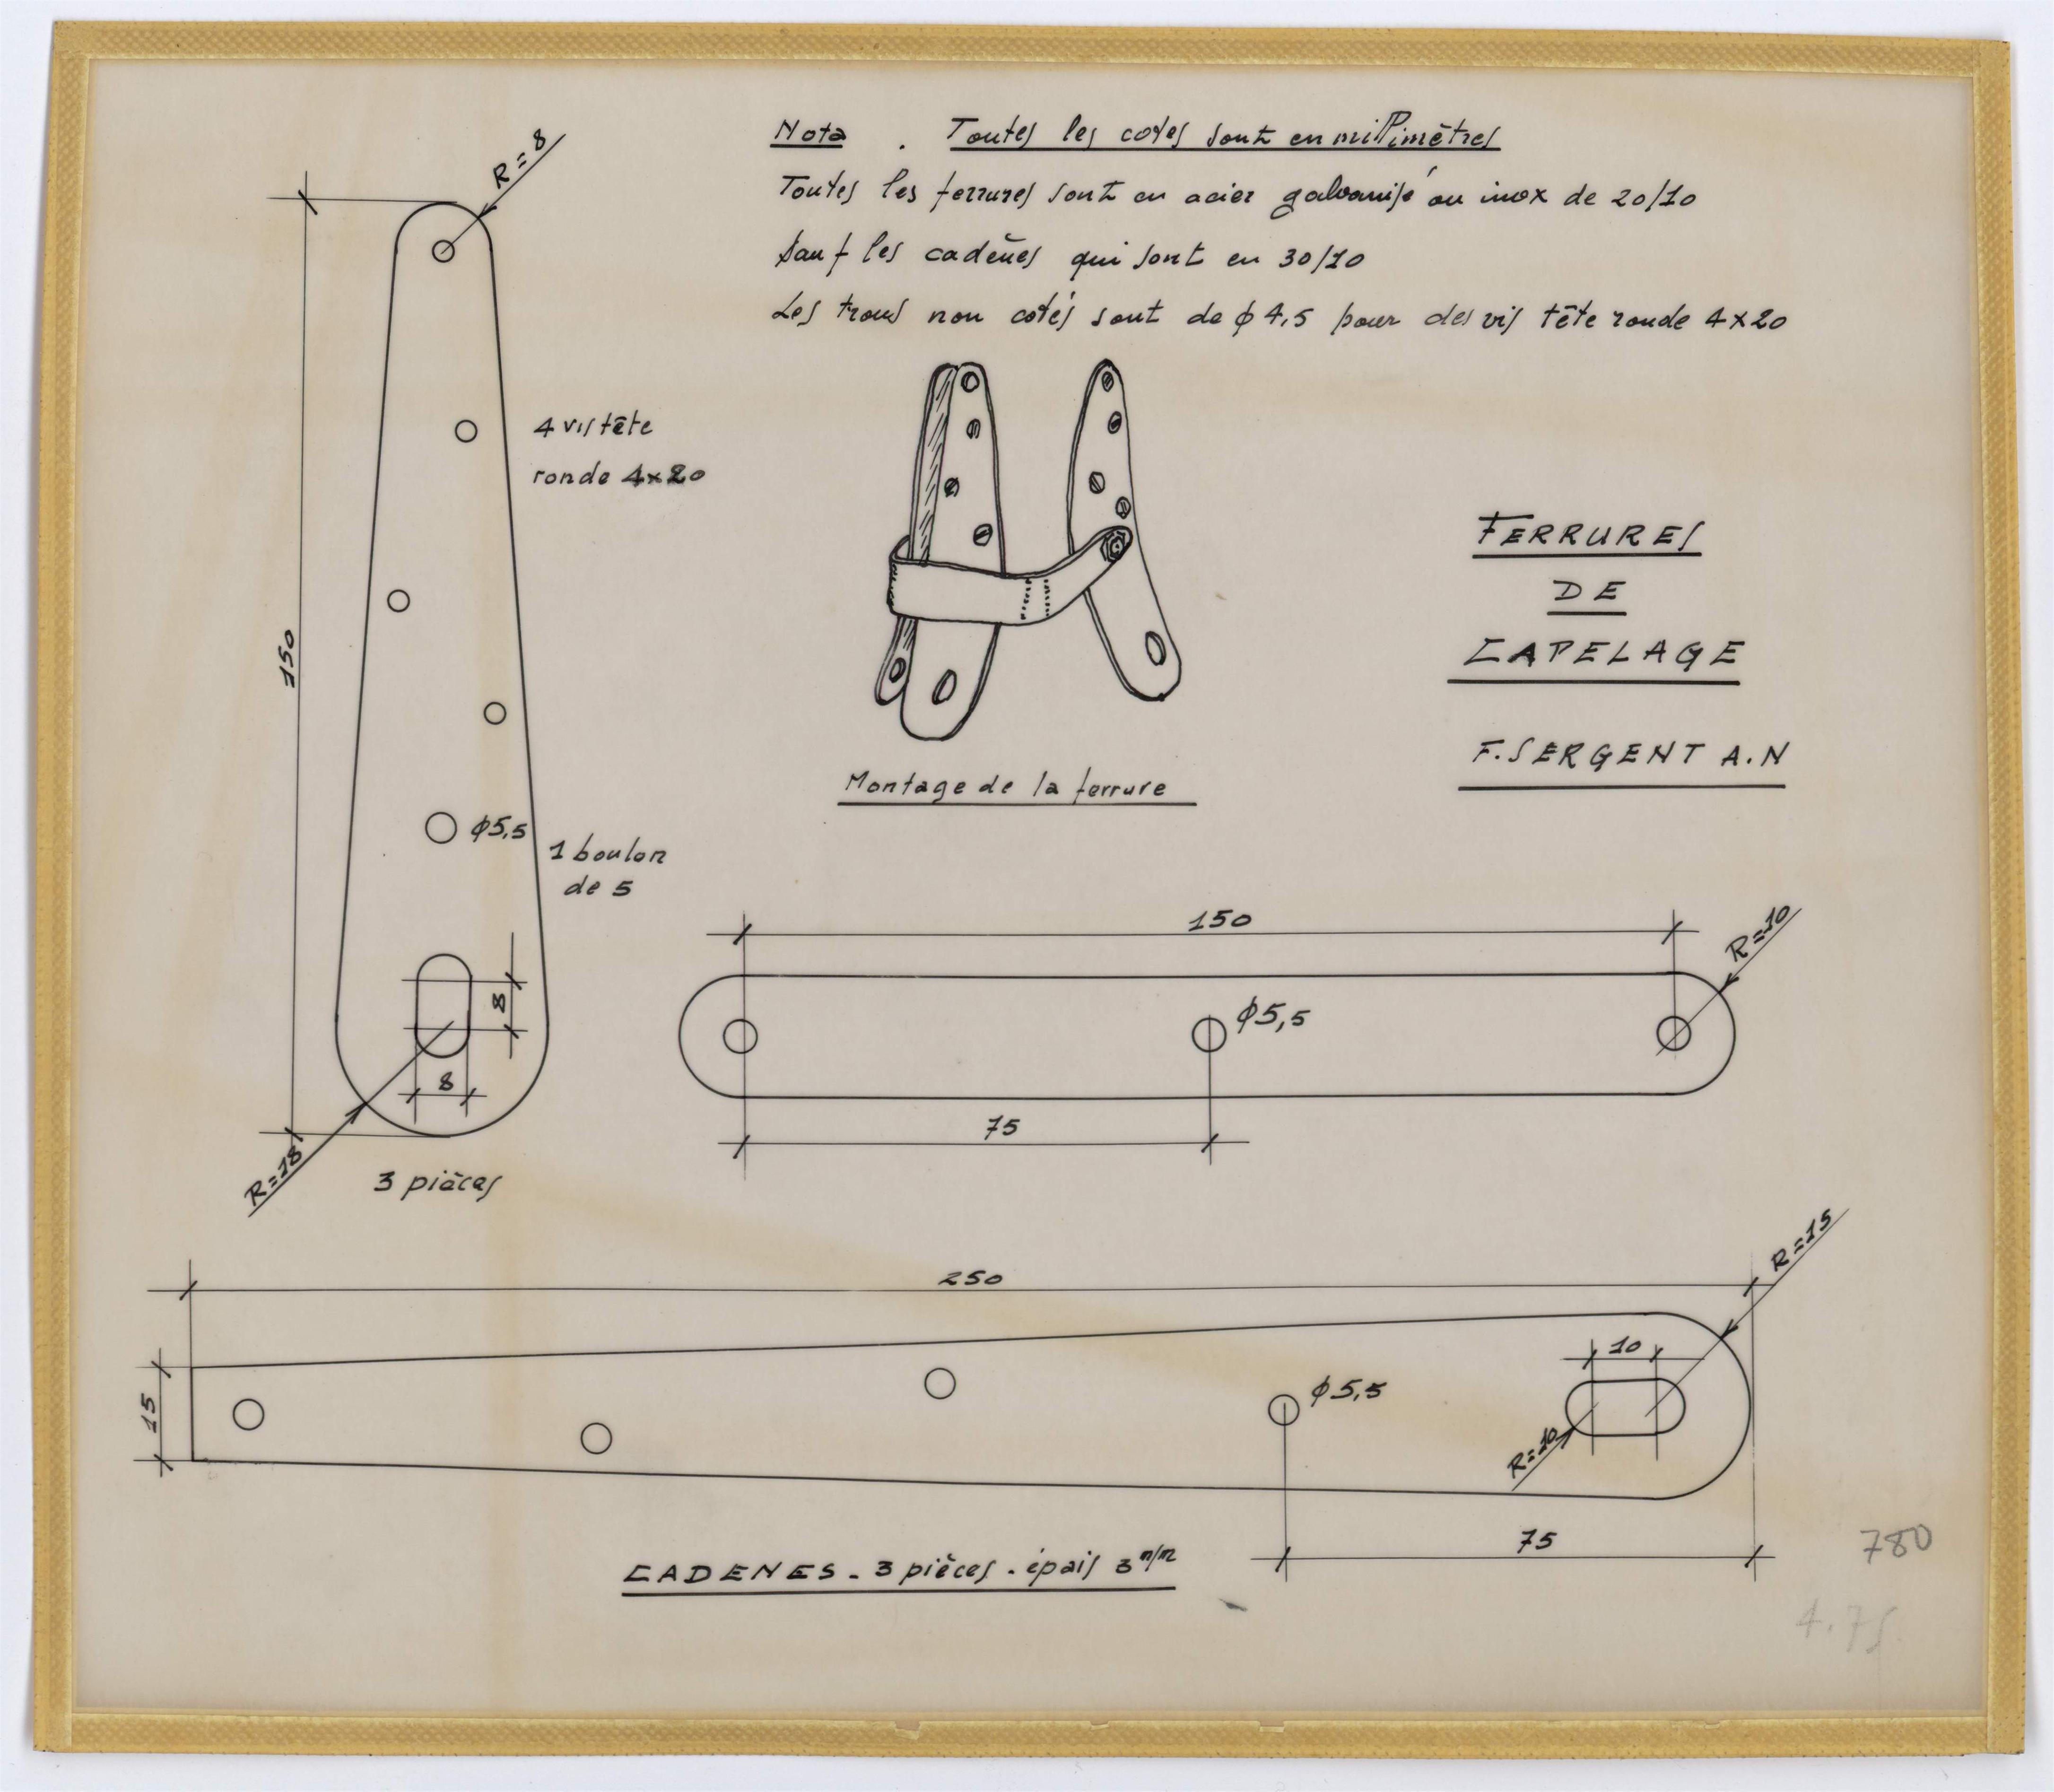 Nota . Toutes les cotes sont en millimètres
Toutes les ferrures sont en acier galvanisé ou inox de 20/10
Sauf les cadènes qui sont en 30/10
Les trous non cotés sont de ϕ 4,5 pour des vis tête ronde 4x20
R=8
150
4 vis tête
ronde 4x20
ϕ5,5
1 boulon
de 5
8
8
R=18
3 pièces
Montage de la ferrure
FERRURES
DE
CAPELAGE
F. SERGENT A.N
150
R=10
ϕ5,5
75
250
R=15
15
10
ϕ5,5
R=10
75
CADENES - 3 pièces - épais 3 m/m
780
4.75